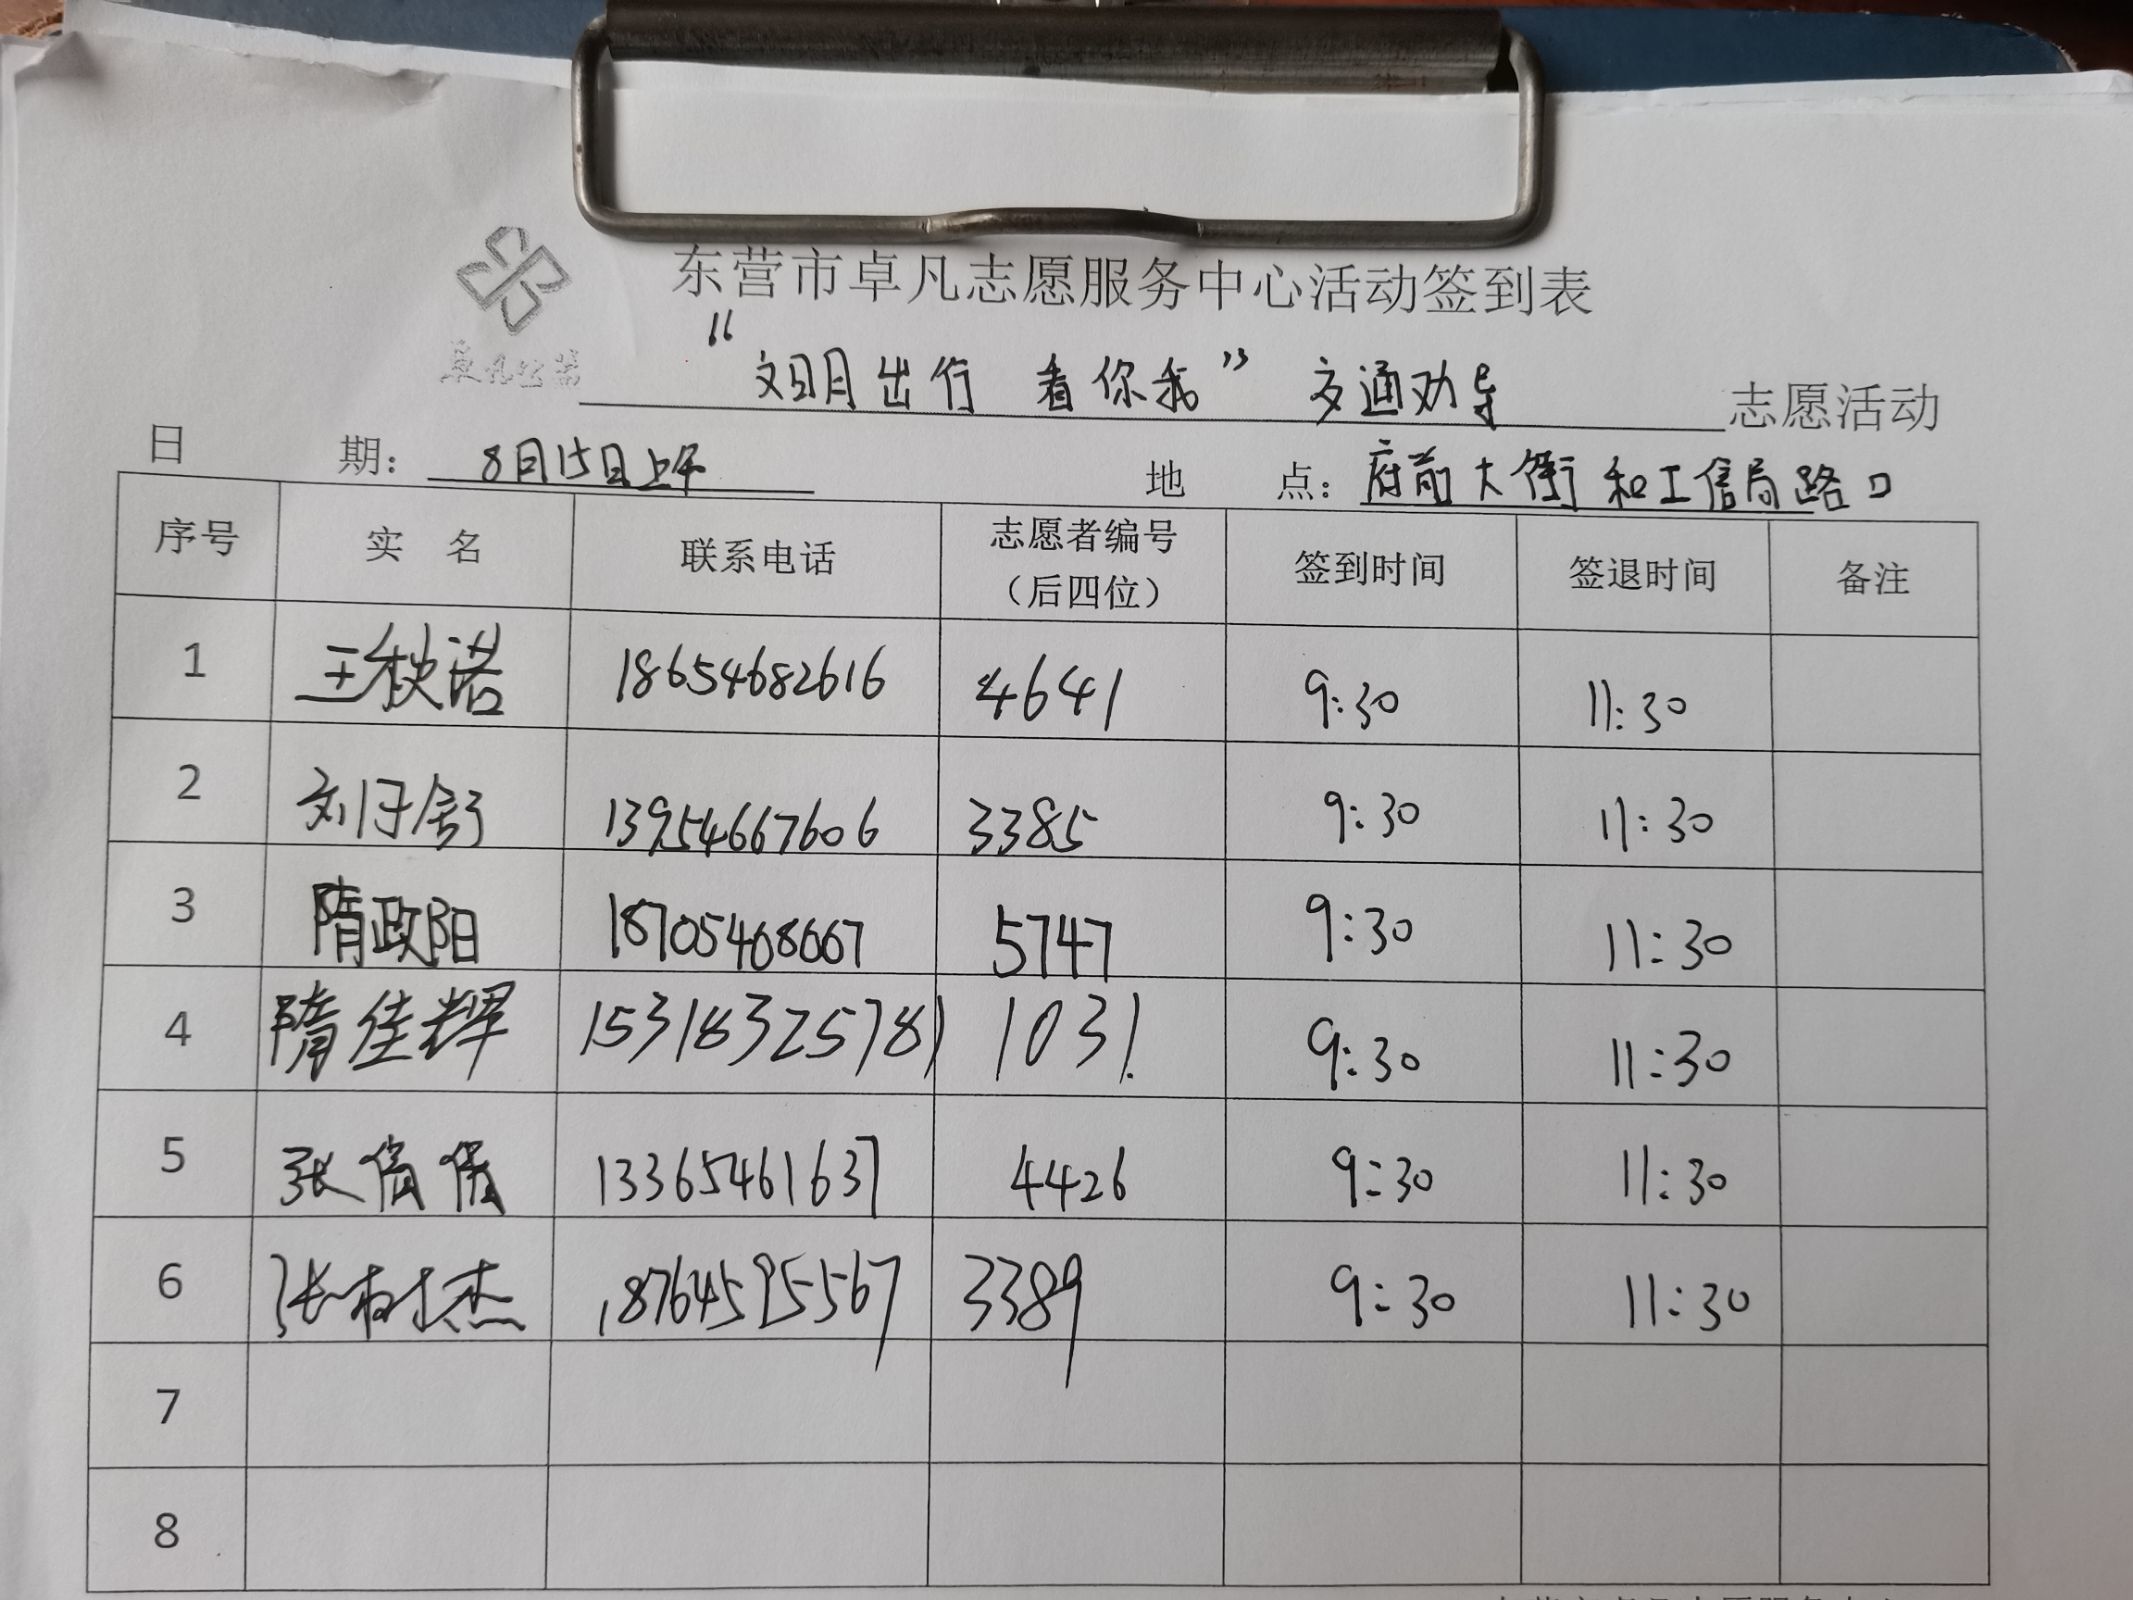 东营市卓凡志愿服务中心活动签到表
卓凡公益
“文明出行 看你我” 交通劝导 志愿活动
日 期：8月15日上午 地 点：府前大街和工信局路口
序号 实 名 联系电话 志愿者编号（后四位） 签到时间 签退时间 备注
1 王秧诺 18654682616 4641 9:30 11:30
2 刘仔舒 13954667606 3385 9:30 11:30
3 隋政阳 18705468667 5747 9:30 11:30
4 隋佳辉 15318325781 1031 9:30 11:30
5 张倩倩 13365461637 4426 9:30 11:30
6 张树杰 18764595567 3389 9:30 11:30
7
8